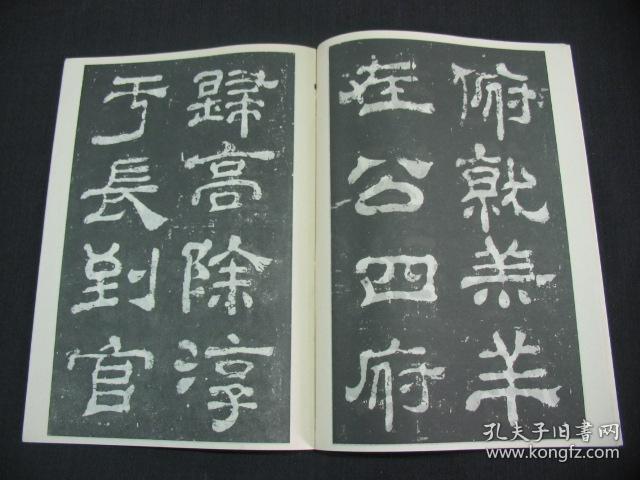 俯就羔羊
在公四府
歸高除淳
于長到官
孔夫子旧书网
www.kongfz.com